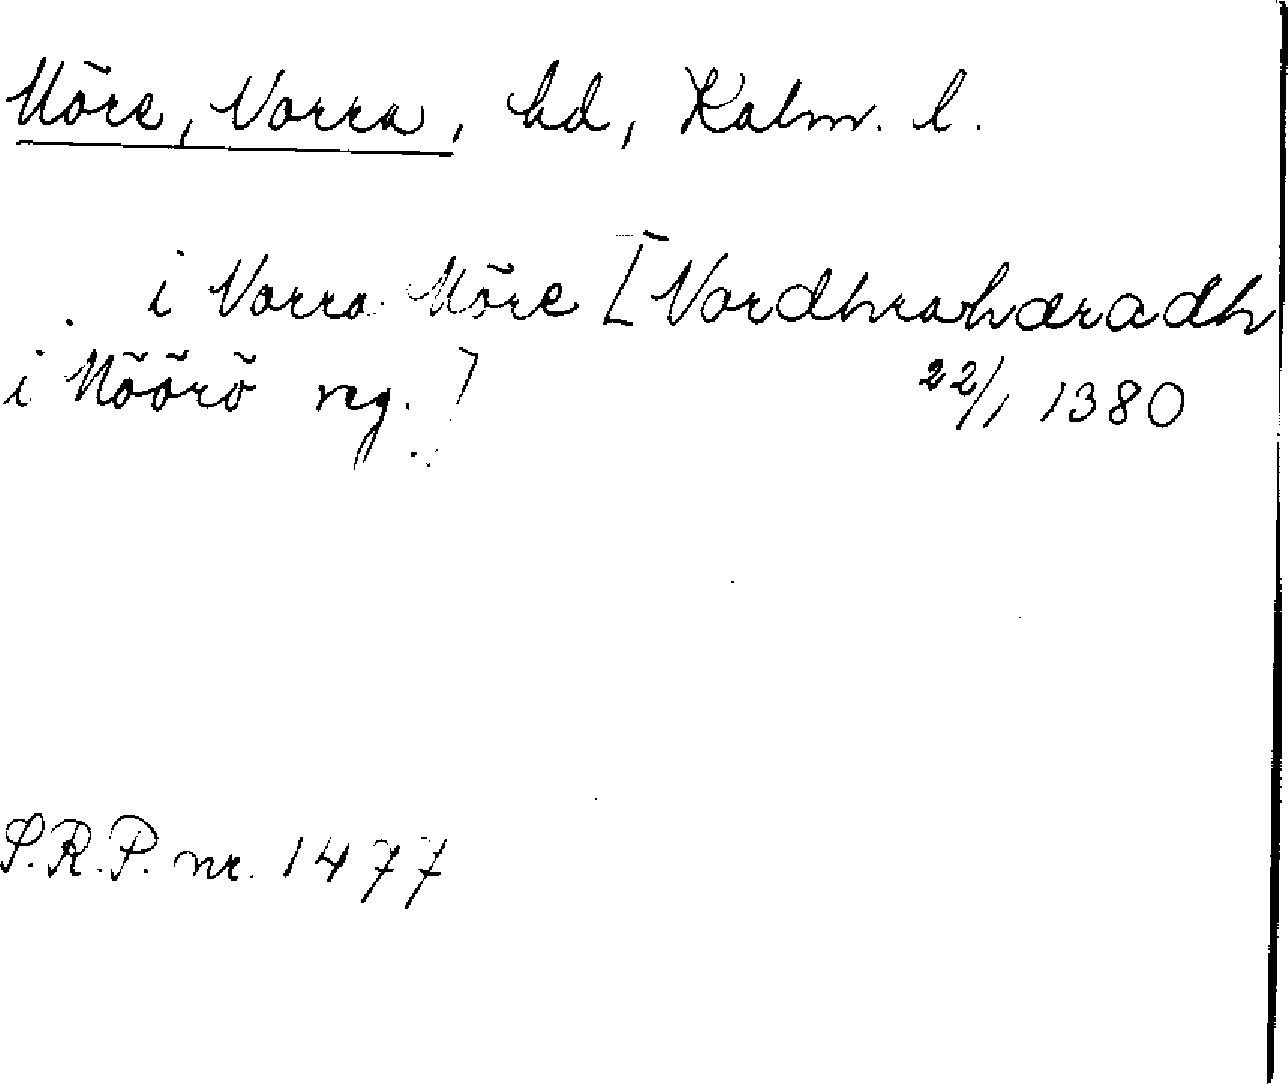 Möre, Norra, hd, Kalm. l.
i Norra Möre [Nordhrahæradh
i Möörö reg.]
22/1 1380
S.R.P. nr. 1477